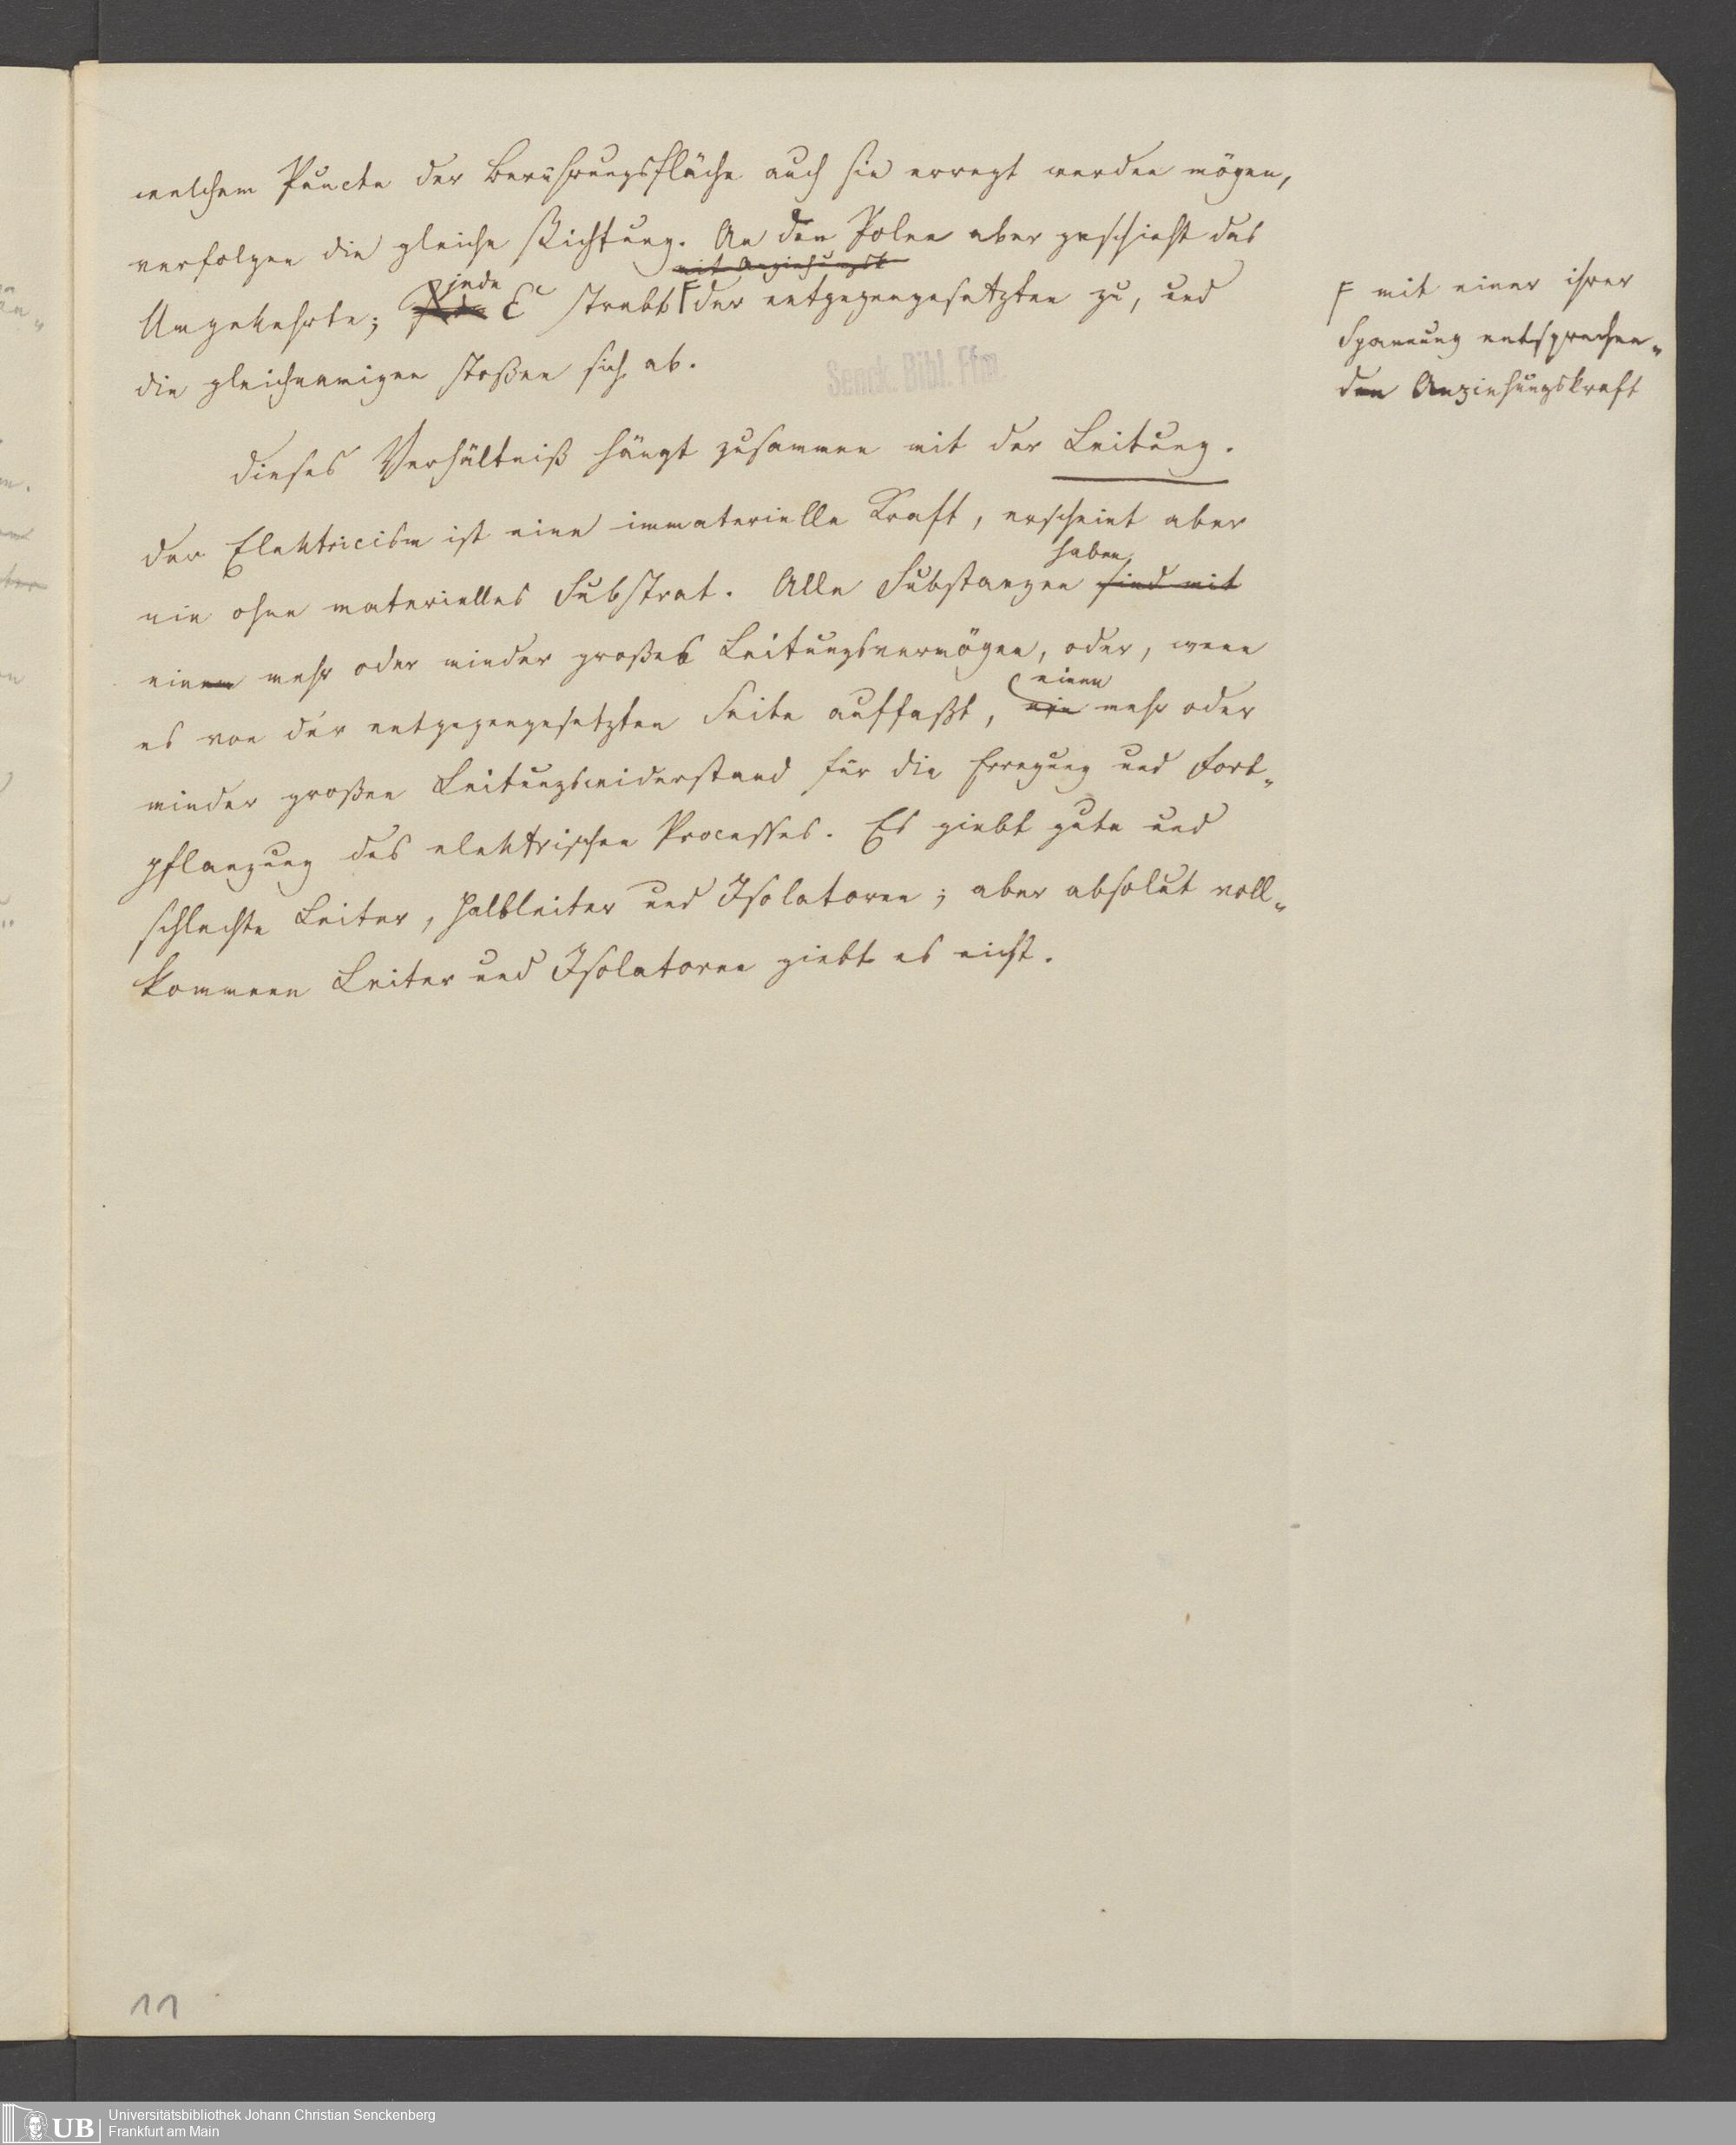 welchem Puncte der Berührungsfläche auch sie erregt werden mögen,
verfolgen die gleiche Richtung. An den Polen aber geschieht das
mit Anziehungsk
Umgekehrte; jede E strebt F der entgegengesetzten zu, und
die gleichnamigen stoßen sich ab.
F mit einer ihrer
Spannung entsprechen„
den Anziehungskraft
Senck. Bibl. Ffm.
Dieses Verhältniß hängt zusammen mit der Leitung.
Der Elektricism ist eine immaterielle Kraft, erscheint aber
haben
nie ohne materielles Substrat. Alle Substanzen sind mit
einem mehr oder minder großes Leitungsvermögen, oder, wenn
einen
es von der entgegengesetzten Seite auffaßt, ein mehr oder
minder großen Leitungswiderstand für die Erregung und Fort„
pflanzung des elektrischen Processes. Es giebt gute und
schlechte Leiter, Halbleiter und Isolatoren; aber absolut voll„
kommnen Leiter und Isolatoren giebt es nicht.
11
UB
Universitätsbibliothek Johann Christian Senckenberg
Frankfurt am Main